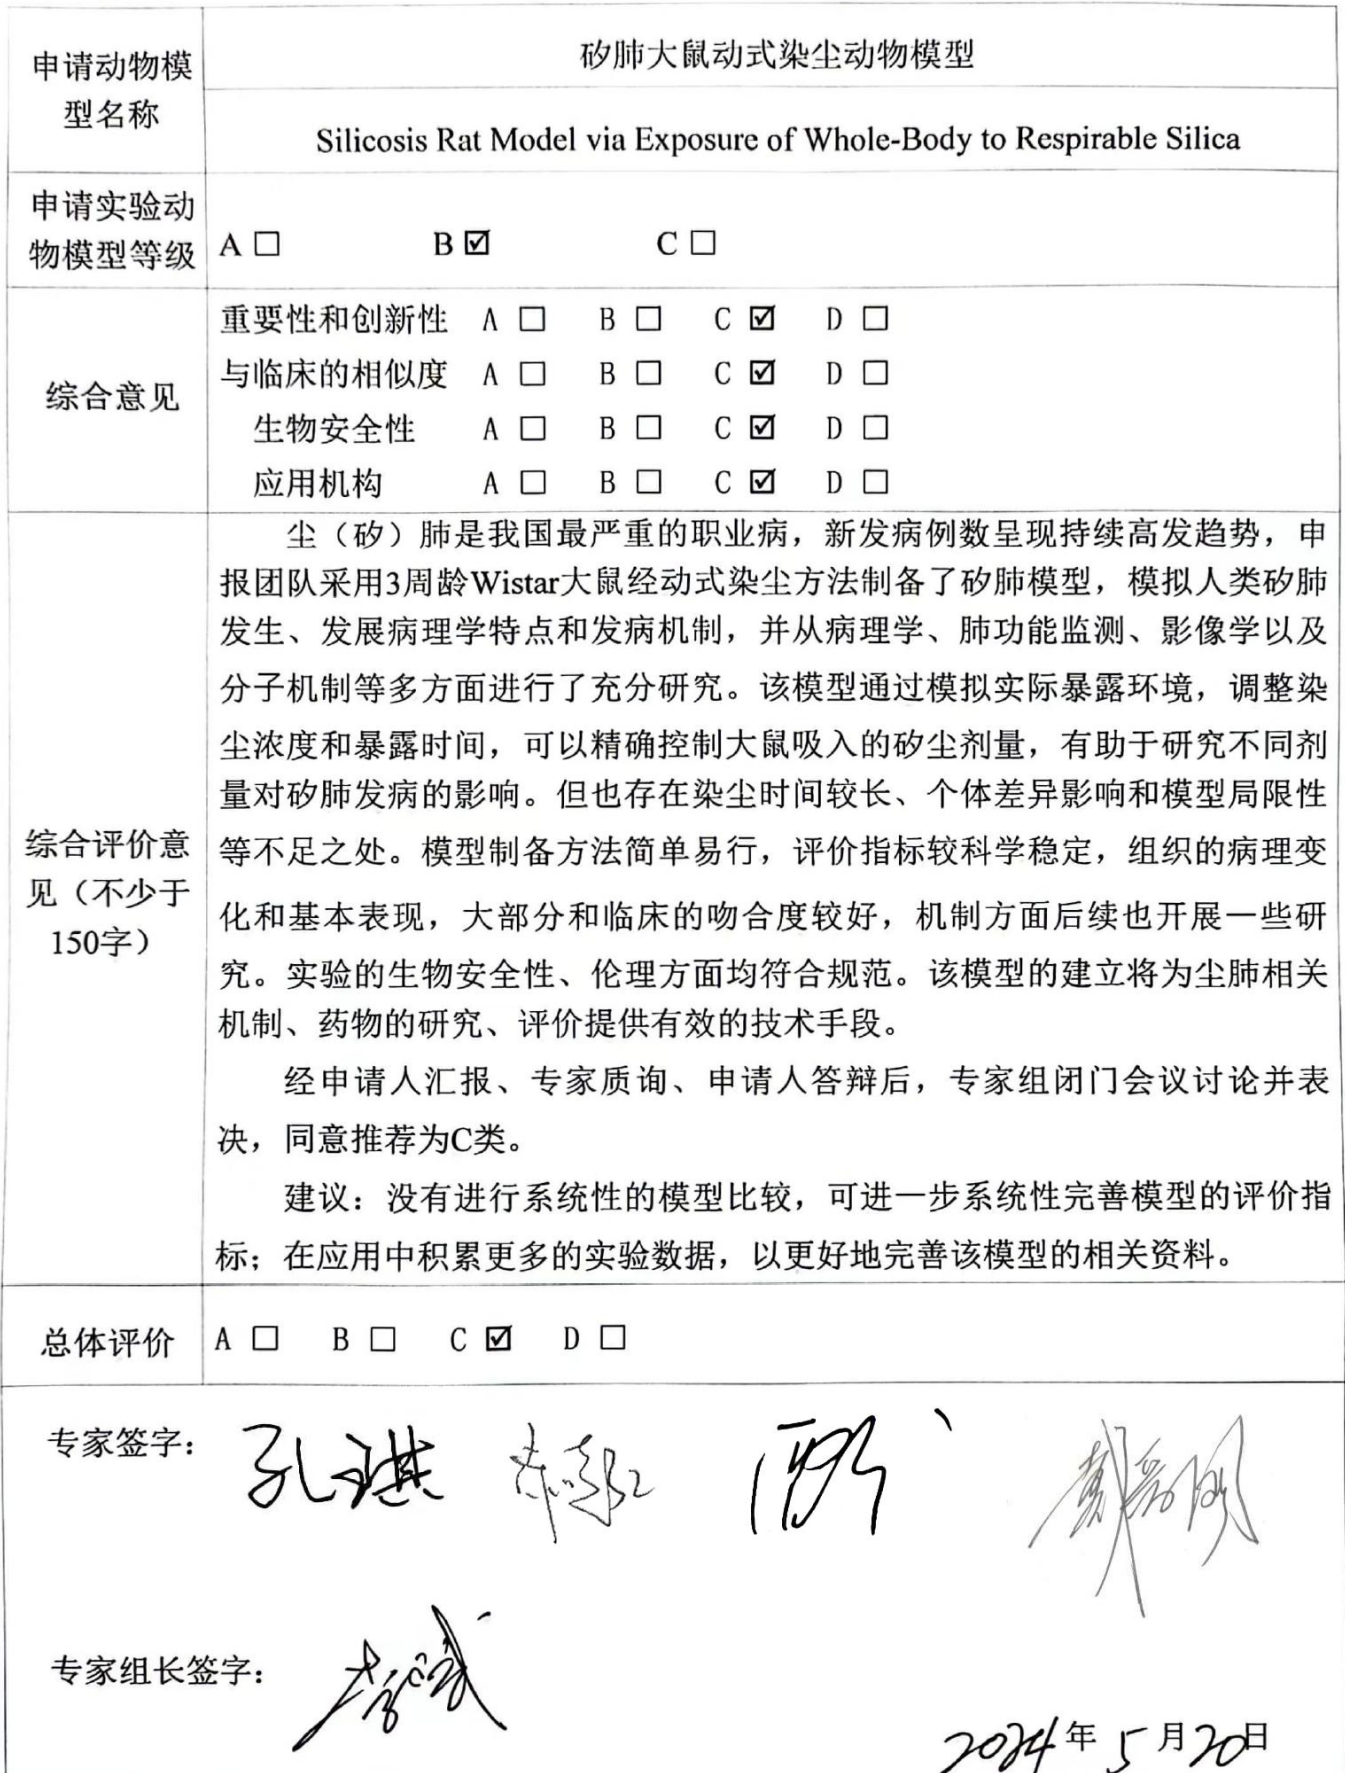 申请动物模
型名称
矽肺大鼠动式染尘动物模型
Silicosis Rat Model via Exposure of Whole-Body to Respirable Silica
申请实验动
物模型等级
A □ B ☑ C □
综合意见
重要性和创新性 A □ B □ C ☑ D □
与临床的相似度 A □ B □ C ☑ D □
生物安全性 A □ B □ C ☑ D □
应用机构 A □ B □ C ☑ D □
综合评价意
见（不少于
150字）
尘（矽）肺是我国最严重的职业病，新发病例数呈现持续高发趋势，申
报团队采用3周龄Wistar大鼠经动式染尘方法制备了矽肺模型，模拟人类矽肺
发生、发展病理学特点和发病机制，并从病理学、肺功能监测、影像学以及
分子机制等多方面进行了充分研究。该模型通过模拟实际暴露环境，调整染
尘浓度和暴露时间，可以精确控制大鼠吸入的矽尘剂量，有助于研究不同剂
量对矽肺发病的影响。但也存在染尘时间较长、个体差异影响和模型局限性
等不足之处。模型制备方法简单易行，评价指标较科学稳定，组织的病理变
化和基本表现，大部分和临床的吻合度较好，机制方面后续也开展一些研
究。实验的生物安全性、伦理方面均符合规范。该模型的建立将为尘肺相关
机制、药物的研究、评价提供有效的技术手段。
经申请人汇报、专家质询、申请人答辩后，专家组闭门会议讨论并表
决，同意推荐为C类。
建议：没有进行系统性的模型比较，可进一步系统性完善模型的评价指
标；在应用中积累更多的实验数据，以更好地完善该模型的相关资料。
总体评价
A □ B □ C ☑ D □
专家签字：
孔琪
专家组长签字：
2024年5月20日